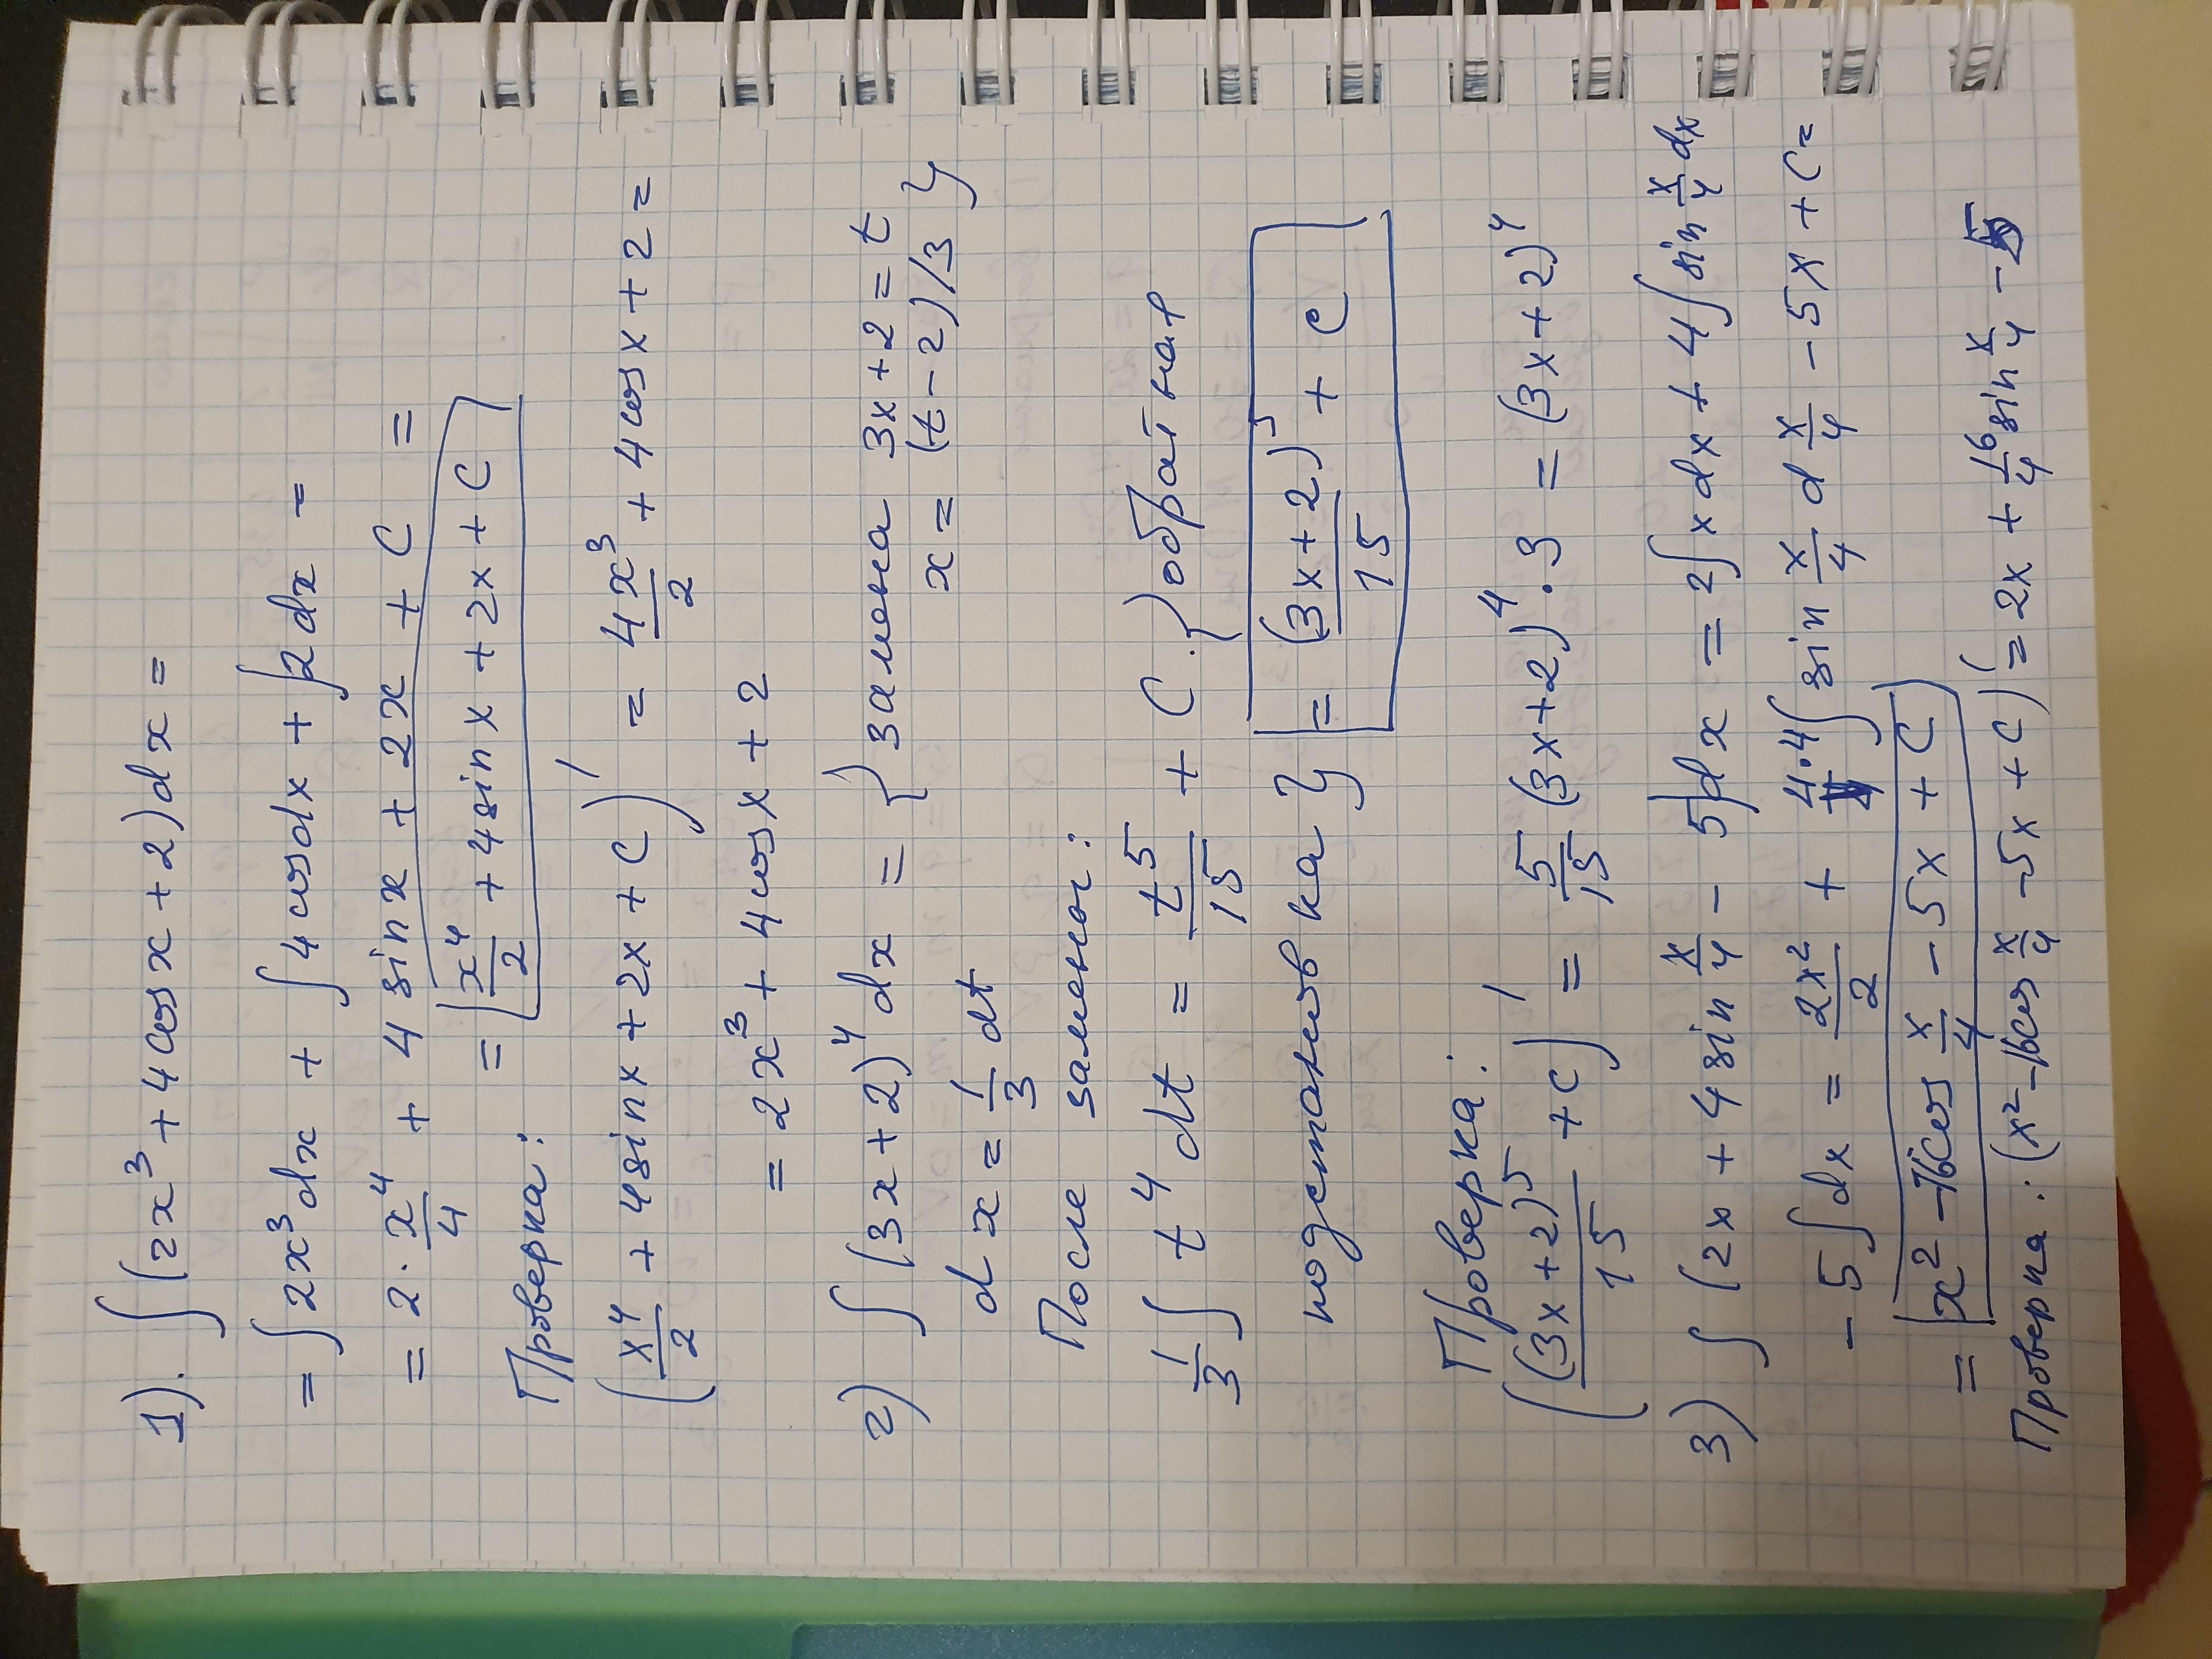 1). ∫(2x³ + 4cosx + 2)dx =
= ∫2x³dx + ∫4cosdx + ∫2dx =
= 2 · x⁴/4 + 4 sinx + 2x + C =
= x⁴/2 + 4sinx + 2x + C
Проверка:
(x⁴/2 + 4sinx + 2x + C)' = 4x³/2 + 4cosx + 2 =
= 2x³ + 4cosx + 2
2) ∫(3x + 2)⁴dx = {замена 3x + 2 = t
dx = 1/3 dt x = (t - 2)/3}
После замены:
1/3 ∫ t⁴ dt = t⁵/15 + C. {обратная
подстановка} = (3x + 2)⁵/15 + C
Проверка:
((3x + 2)⁵/15 + C)' = 5/15 (3x + 2)⁴ · 3 = (3x + 2)⁴
3) ∫(2x + 4sin x/4 - 5)dx = 2∫xdx + 4∫sin x/4 dx
- 5∫dx = 2x²/2 + 4·4∫sin x/4 d x/4 - 5x + C =
= x² - 16cos x/4 - 5x + C
Проверка: (x² - 16cos x/4 - 5x + C)' = 2x + 16/4 sin x/4 - 5